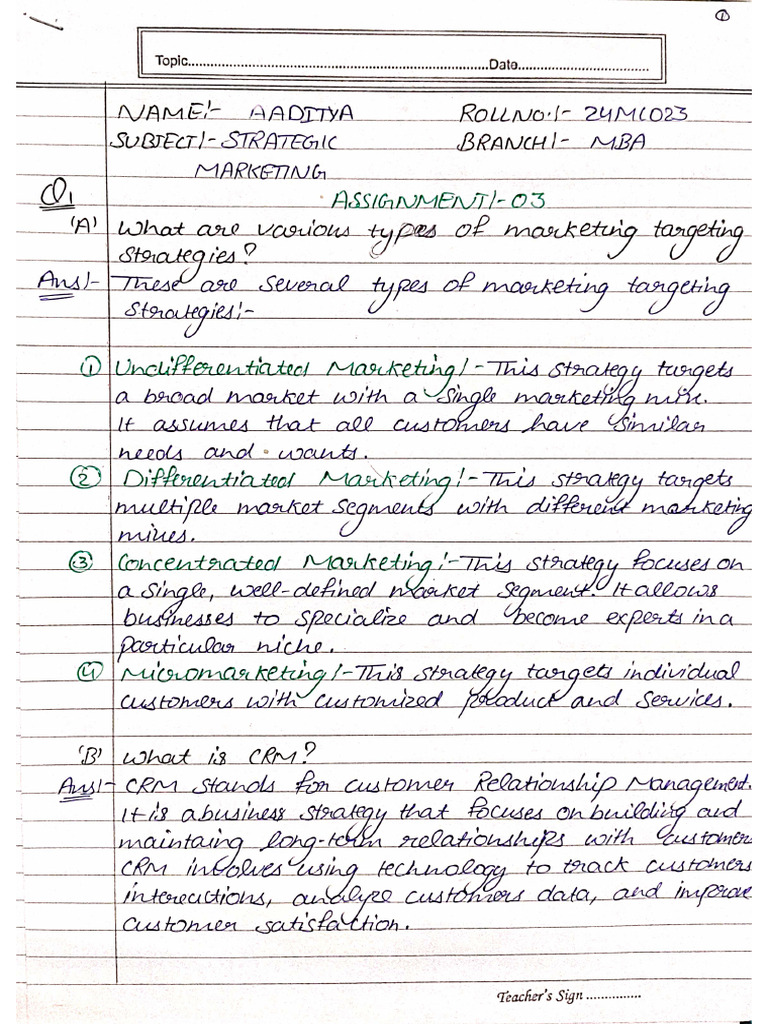 ①
Topic.......... Date..........
NAME:- AADITYA ROLLNO:- 24MC023
SUBJECT:- STRATEGIC BRANCH:- MBA
MARKETING
Q1 ASSIGNMENT:-03
'A' What are various types of marketing targeting
strategies?
Ans:- These are several types of marketing targeting
strategies:-
① Undifferentiated Marketing:- This strategy targets
a broad market with a single marketing mix.
It assumes that all customers have similar
needs and wants.
② Differentiated Marketing:- This strategy targets
multiple market segments with different marketing
mixes.
③ Concentrated Marketing:- This strategy focuses on
a single, well-defined market segment. It allows
businesses to specialize and become experts in a
particular niche.
④ Micromarketing:- This strategy targets individual
customers with customized product and services.
'B' What is CRM?
Ans:- CRM stands for customer Relationship Management.
It is a business strategy that focuses on building and
maintaing long-term relationships with customer
CRM involves using technology to track customers
intereactions, analyze customers data, and improve
customer satisfaction.
Teacher's Sign ...............